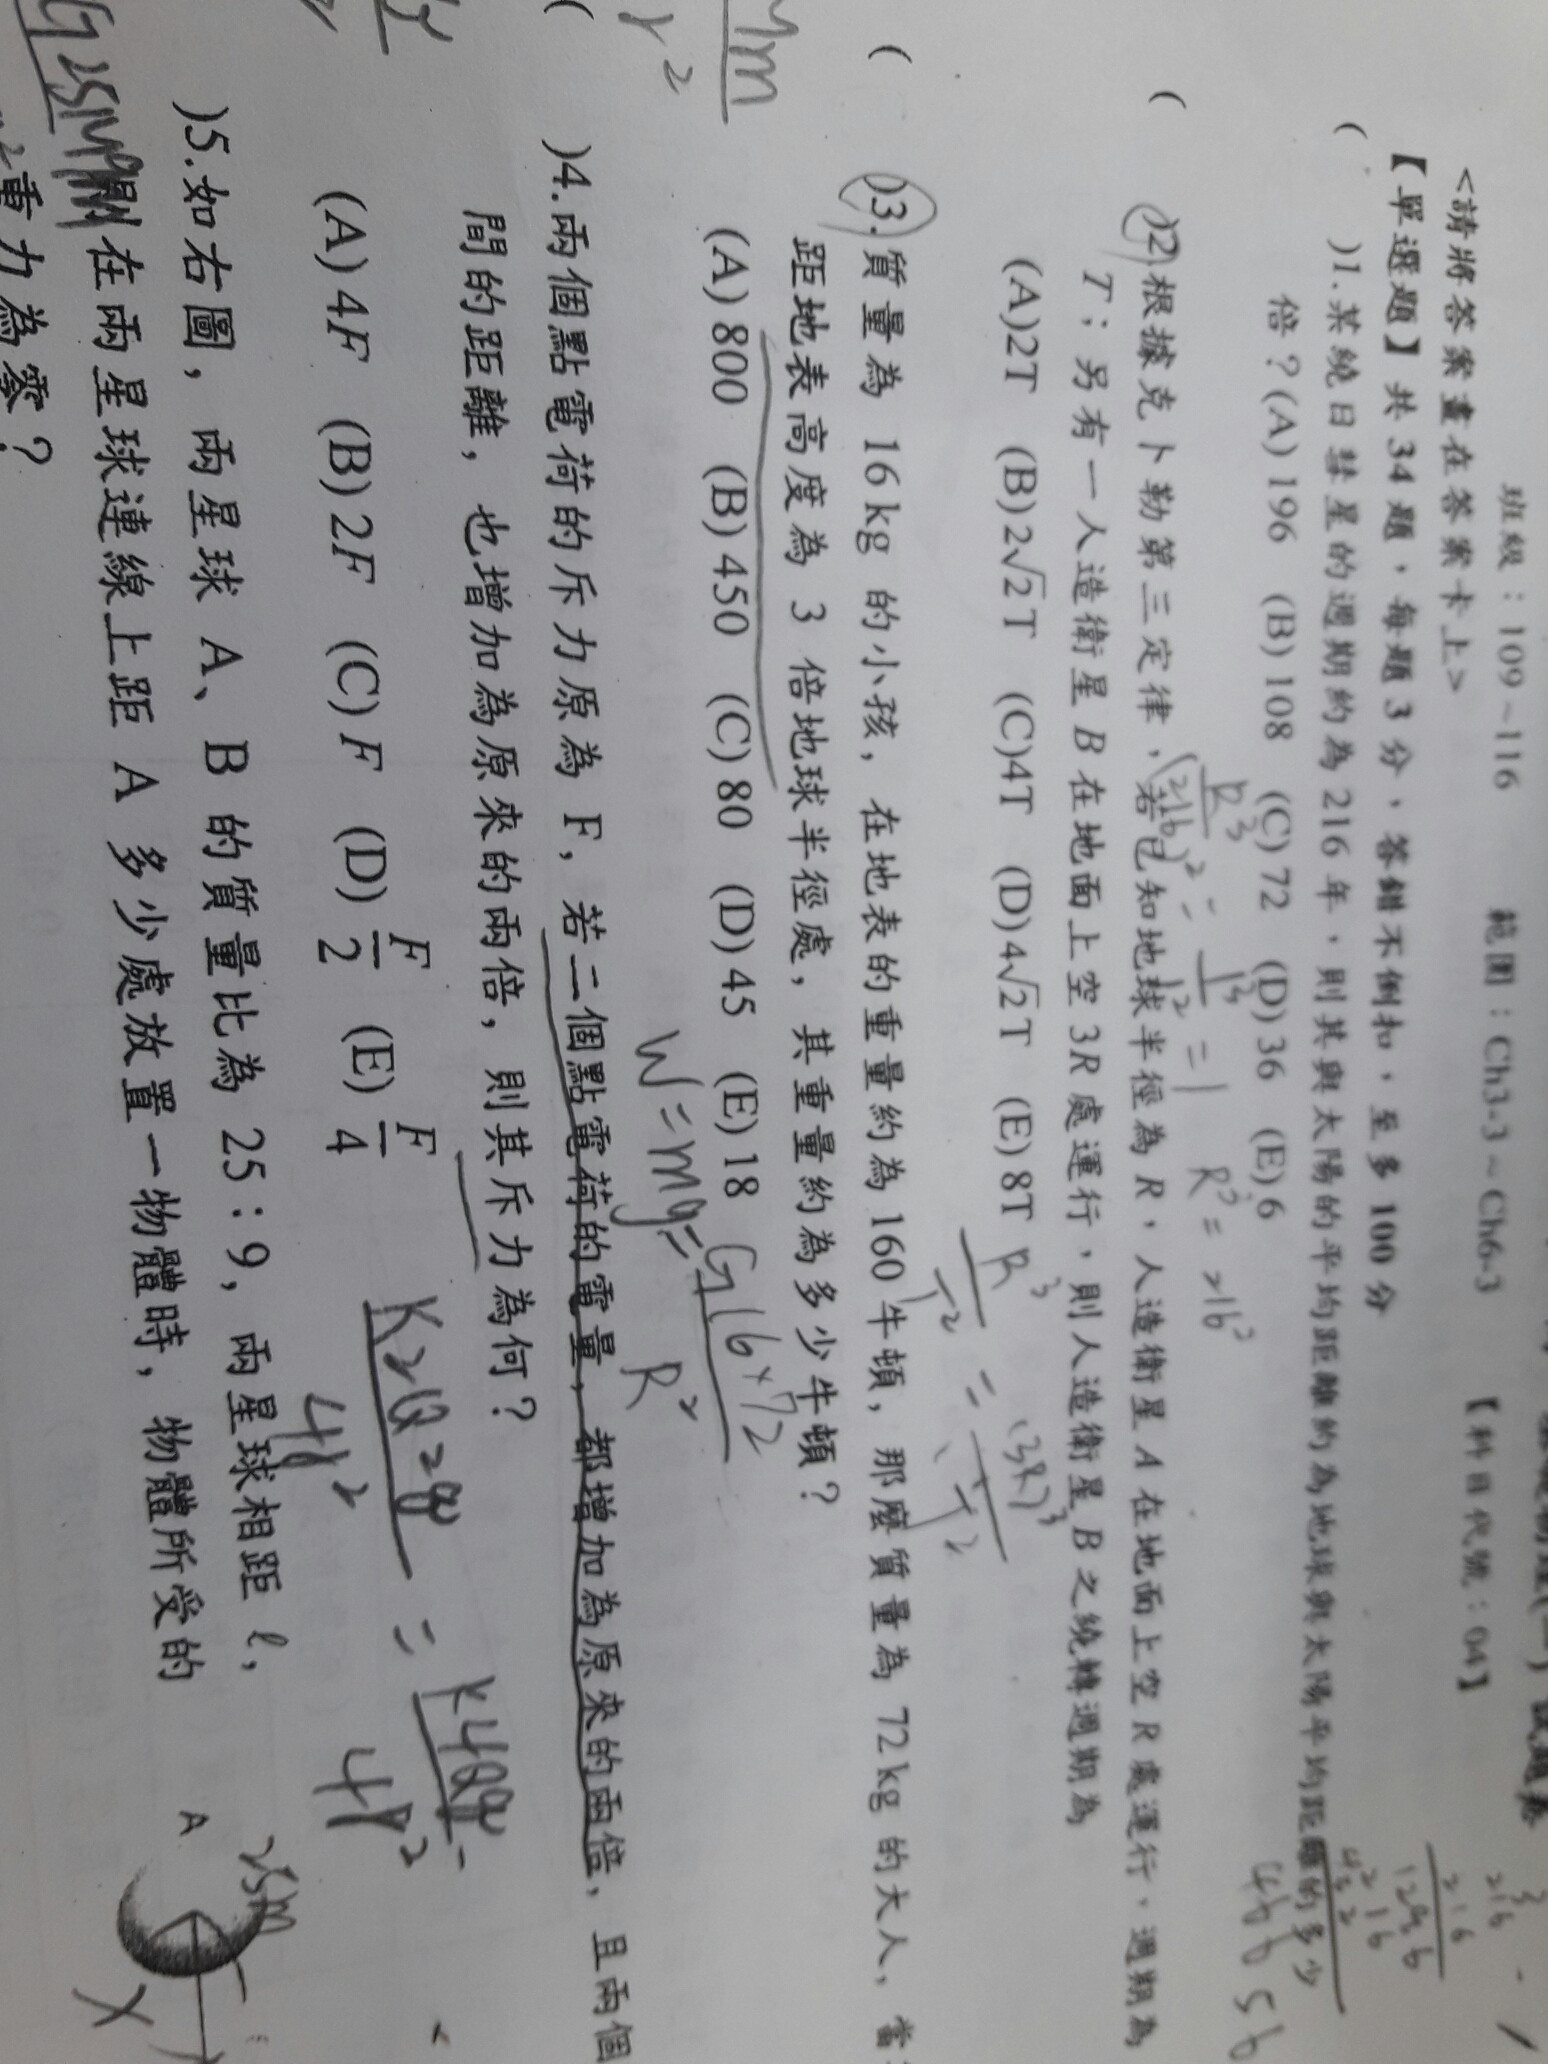 班級：109~116 範圍：Ch3-3~Ch6-3 【科目代號：04】
<請將答案畫在答案卡上>
【單選題】共34題，每題3分，答錯不倒扣，至多100分
( )1.某繞日彗星的週期約為216年，則其與太陽的平均距離約為地球與太陽平均距離的多少
倍？(A)196 (B)108 (C)72 (D)36 (E)6
( )2.根據克卜勒第三定律，若已知地球半徑為R，人造衛星A在地面上空R處運行，週期為
T；另有一人造衛星B在地面上空3R處運行，則人造衛星B之繞轉週期為
(A)2T (B)2√2T (C)4T (D)4√2T (E)8T
( )3.質量為 16kg 的小孩，在地表的重量約為160牛頓，那麼質量為 72kg 的大人，當
距地表高度為 3 倍地球半徑處，其重量約為多少牛頓？
(A)800 (B)450 (C)80 (D)45 (E)18
( )4.兩個點電荷的斥力原為 F，若二個點電荷的電量，都增加為原來的兩倍，且兩個
間的距離，也增加為原來的兩倍，則其斥力為何？
(A)4F (B)2F (C)F (D)F/2 (E)F/4
)5.如右圖，兩星球 A、B 的質量比為 25：9，兩星球相距 ℓ，
則在兩星球連線上距 A 多少處放置一物體時，物體所受的
重力為零？
A
25m
R³/(216)² = 1³/1² = 1
R³ = 216²
R³/T² = (3R)³/T²
W=mg= G16×72/R²
K2Q2q/4r² = K4Qq/4r²
216
216
1296
216
432
46656
Mm
r²
X